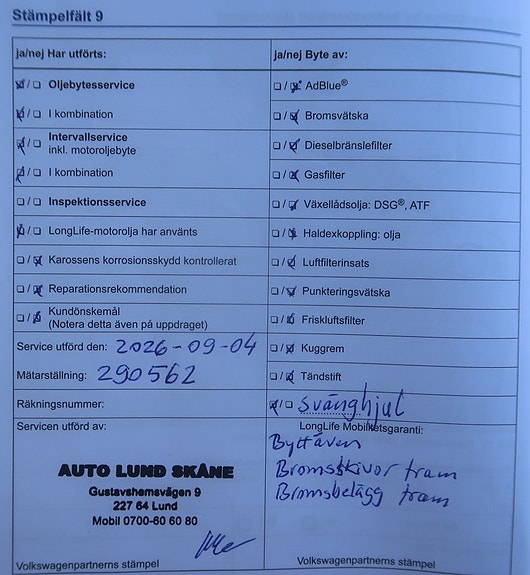 Stämpelfält 9
ja/nej Har utförts:
☒/☐ Oljebytesservice
☒/☐ I kombination
☒/☐ Intervallservice
inkl. motoroljebyte
☒/☐ I kombination
☐/☐ Inspektionsservice
☒/☐ LongLife-motorolja har använts
☐/☒ Karossens korrosionsskydd kontrollerat
☐/☒ Reparationsrekommendation
☐/☒ Kundönskemål
(Notera detta även på uppdraget)
Service utförd den: 2026-09-04
Mätarställning: 290562
Räkningsnummer:
Servicen utförd av:
AUTO LUND SKÅNE
Gustavshemsvägen 9
227 64 Lund
Mobil 0700-60 60 80
Volkswagenpartnerns stämpel
ja/nej Byte av:
☐/☒ AdBlue®
☐/☒ Bromsvätska
☐/☒ Dieselbränslefilter
☐/☒ Gasfilter
☐/☒ Växellådsolja: DSG®, ATF
☐/☒ Haldexkoppling: olja
☐/☒ Luftfilterinsats
☐/☒ Punkteringsvätska
☐/☒ Friskluftsfilter
☐/☒ Kuggrem
☐/☒ Tändstift
☒/☐ Svänghjul
LongLife Mobilitetsgaranti:
Bytt även
Bromsskivor fram
Bromsbelägg fram
Volkswagenpartnerns stämpel